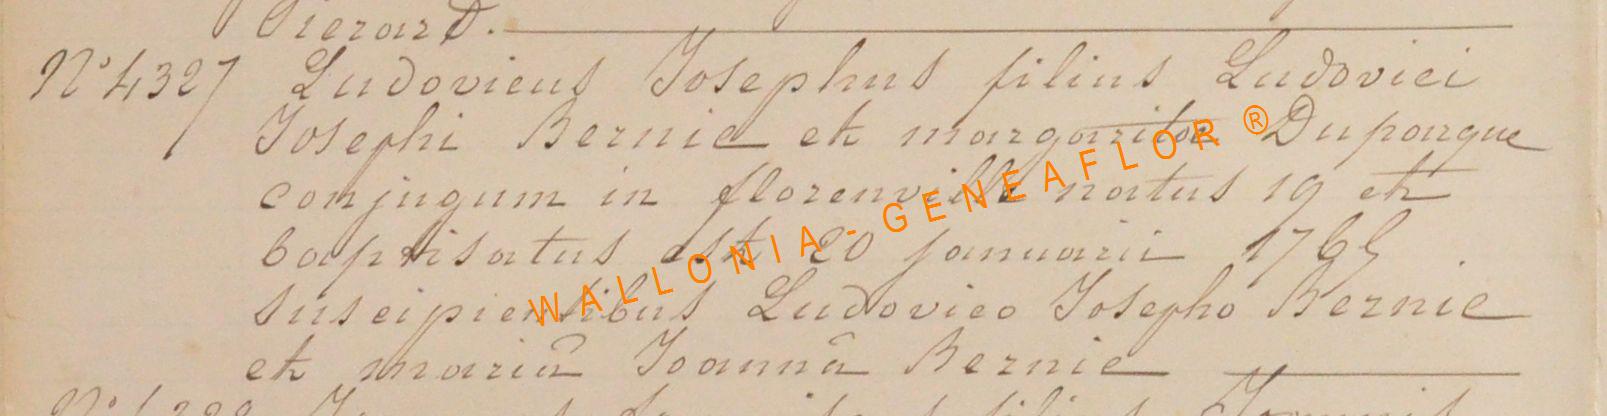 Pierard.
N° 4327 Ludovicus Josephus filius Ludovici
Josephi Bernie et margarita Dupongue
conjugum in florenville natus 19 et
baptisatus est 20 januarii 1765
suscipientibus Ludovico Josepho Bernie
et mariâ Joannâ Bernie
WALLONIA-GENEAFLOR ®